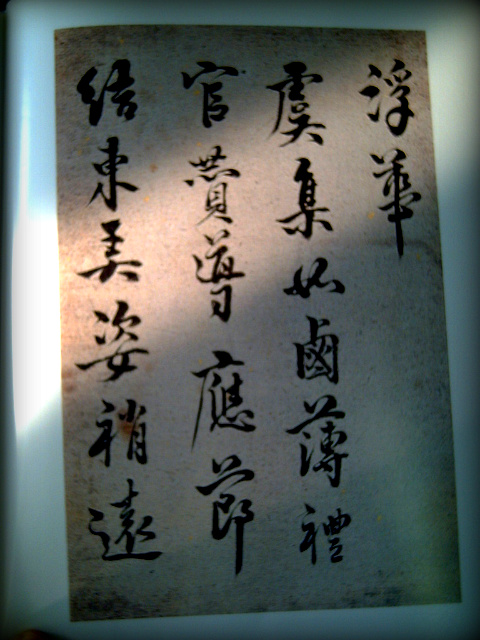 浮華
虞集如鹵薄禮
官贊導應節
結束美姿稍遠